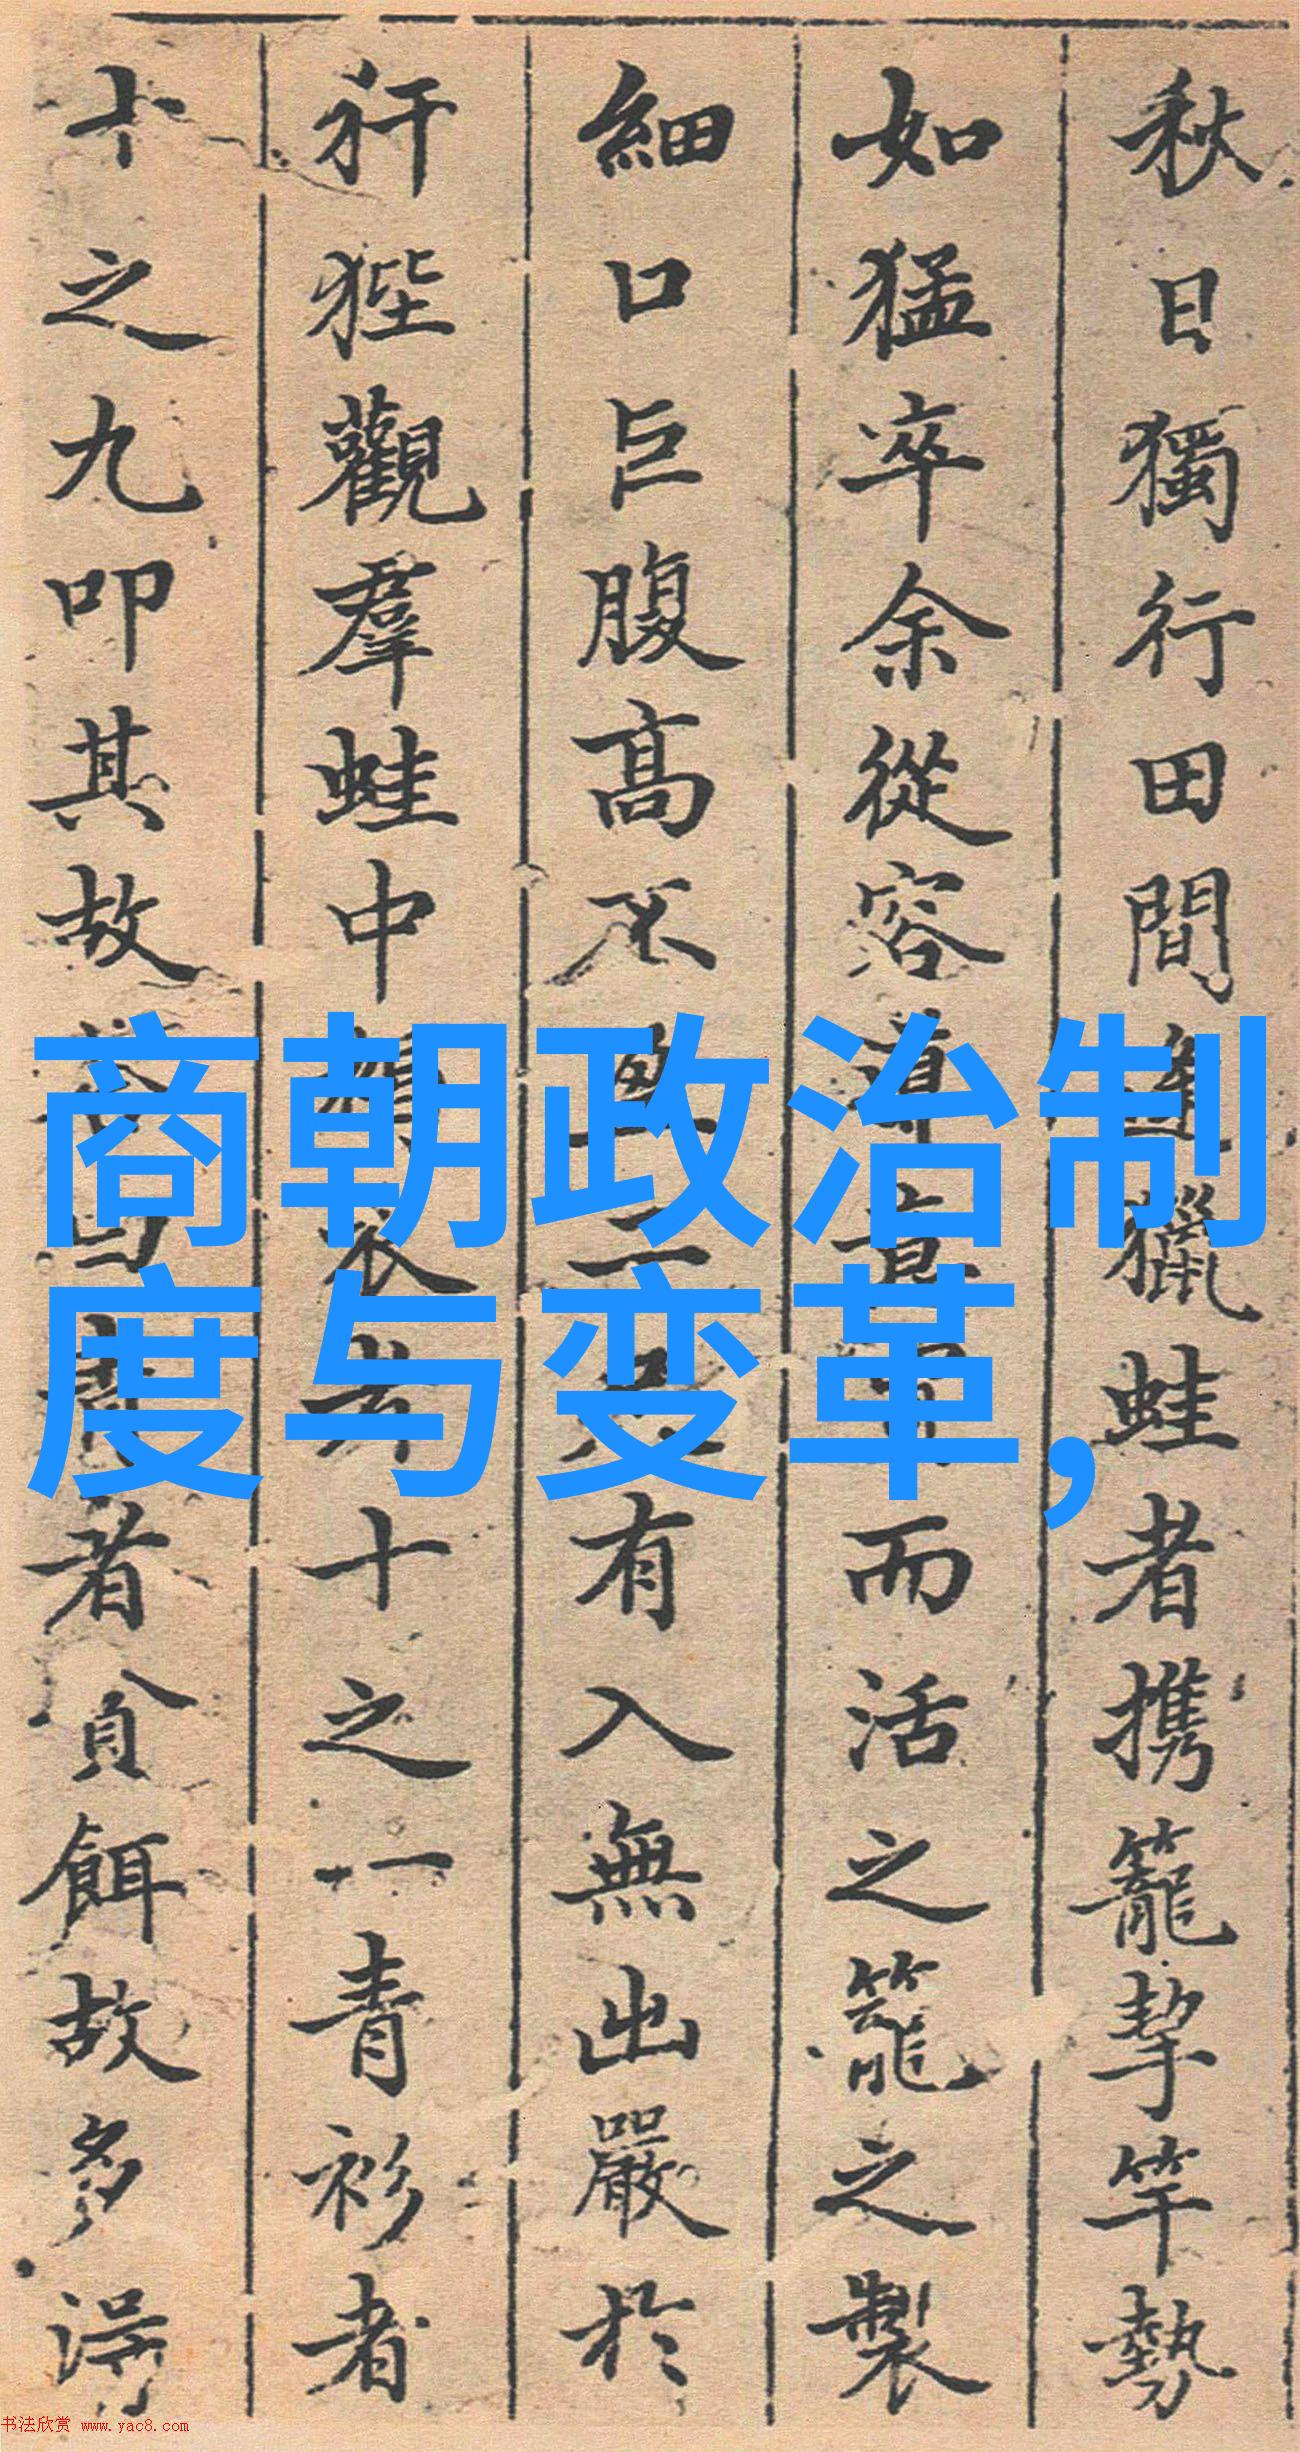 秋日獨行田間進獵蛙者携籠挈竿勢
如猛卒余從容而活之籠之製
細口巨腹高不有入無出嚴於
犴狴觀羣蛙中衣十之一青衫者
十之九叩其故者貪餌故多得
商朝政治制
度与变革,
书法欣赏 www.yac8.com